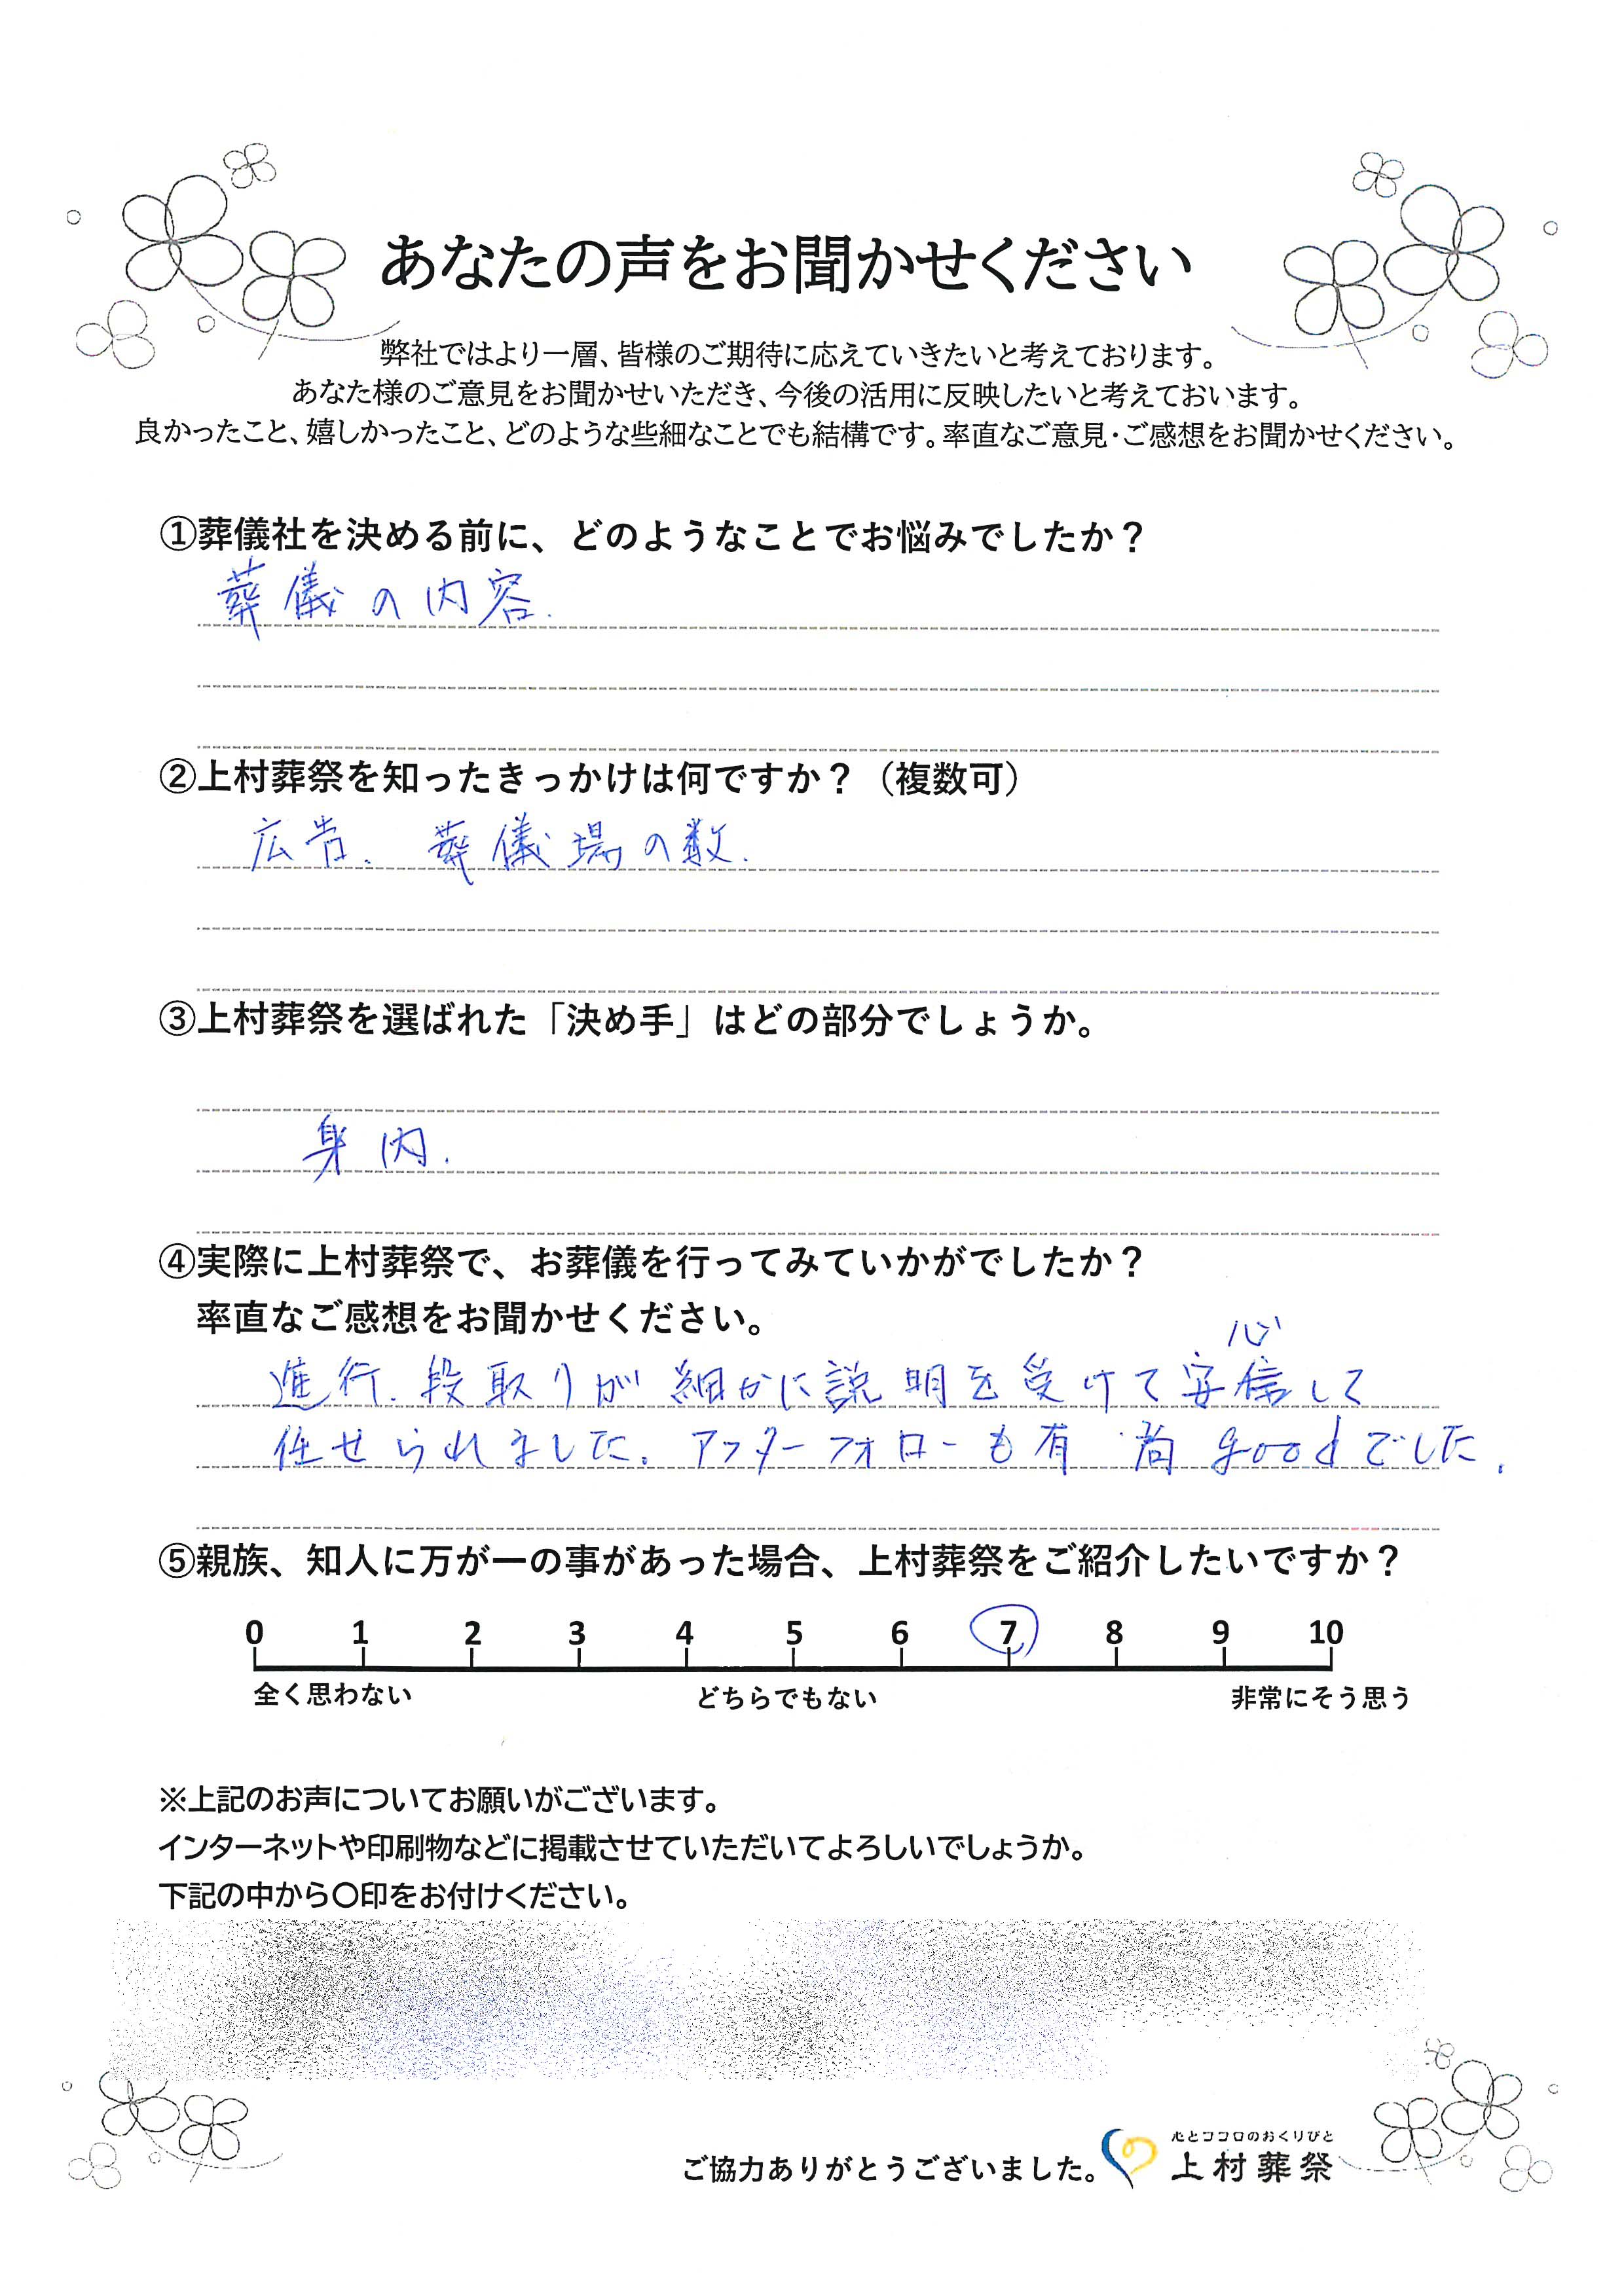 あなたの声をお聞かせください
弊社ではより一層、皆様のご期待に応えていきたいと考えております。
あなた様のご意見をお聞かせいただき、今後の活用に反映したいと考えておいます。
良かったこと、嬉しかったこと、どのような些細なことでも結構です。率直なご意見・ご感想をお聞かせください。
①葬儀社を決める前に、どのようなことでお悩みでしたか？
葬儀の内容.
②上村葬祭を知ったきっかけは何ですか？（複数可）
広告、葬儀場の数.
③上村葬祭を選ばれた「決め手」はどの部分でしょうか。
身内.
④実際に上村葬祭で、お葬儀を行ってみていかがでしたか？
率直なご感想をお聞かせください。
心
進行、段取りが細かに説明を受けて安信して
任せられました。アフターフォローも有 尚goodでした.
⑤親族、知人に万が一の事があった場合、上村葬祭をご紹介したいですか？
0 1 2 3 4 5 6 7 8 9 10
全く思わない どちらでもない 非常にそう思う
※上記のお声についてお願いがございます。
インターネットや印刷物などに掲載させていただいてよろしいでしょうか。
下記の中から〇印をお付けください。
心とココロのおくりびと
ご協力ありがとうございました。 上村葬祭